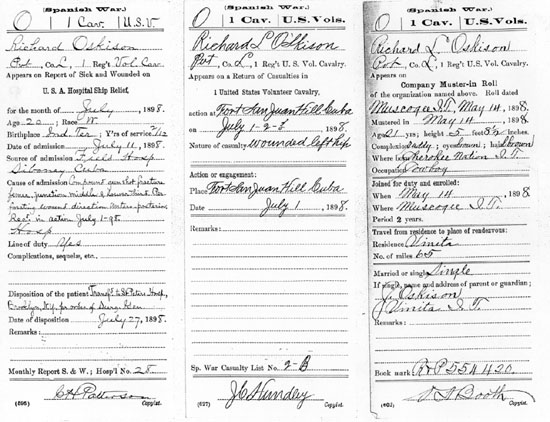 (Spanish War.)
O 1 Cav. U.S.V.
Richard Oskison
Pvt., Co. L, 1 Reg't Vol. Cav.
Appears on Report of Sick and Wounded on
U. S. A. Hospital Ship Relief,
for the month of July, 1898.
Age 20; Race W.
Birthplace Ind. Ter; Y'rs of service 2/12
Date of admission July 11, 1898.
Source of admission Field Hosp
Siboney Cuba
Cause of admission Compound gunshot fracture
femur, junction middle &
wound direction
Rec'd in action July 1-98.
Hosp
Line of duty Yes
Complications, sequelæ, etc.
Disposition of the patient: Transf'd to St Peters Hosp,
Brooklyn, N.Y. per order of Surg. Gen
Date of disposition July 27, 1898.
Remarks:
Monthly Report S. & W.; Hosp'l No. 25
C H Patterson
(696) Copyist.
(Spanish War.)
O 1 Cav. U.S. Vols.
Richard L Oskison
Pvt, Co. L, 1 Reg't U.S. Vol. Cavalry.
Appears on a Return of Casualties in
1 United States Volunteer Cavalry,
action at Fort San Juan Hill Cuba
on July 1-2-3, 1898.
Nature of casualty wounded, left hip
Action or engagement:
Place Fort San Juan Hill Cuba
Date July 1, 1898.
Remarks:
Sp. War Casualty List No. 2-B
J C Hundley
(627) Copyist.
(Spanish War.)
O 1 Cav. U.S. Vols.
Richard L. Oskison
Pvt, Co. L, 1 Reg't U.S. Vol. Cavalry.
Appears on
Company Muster-in Roll
of the organization named above. Roll dated
Muscogee I.T., May 14, 1898.
Mustered in May 14, 1898.
Age 21 yrs; height 5 feet 8½ inches.
Complexion ; eyes brown; hair brown
Where born Cherokee Nation I.T.
Occupation Cowboy
Joined for duty and enrolled:
When May 14, 1898
Where Muscogee I.T.
Period 2 years.
Travel from residence to place of rendezvous:
Residence Vinita
No. of miles 65
Married or single Single
If single, name and address of parent or guardian;
J. Oskison
Vinita I.T.
Remarks:
Book mark R&P 554420.
Booth
Copyist.